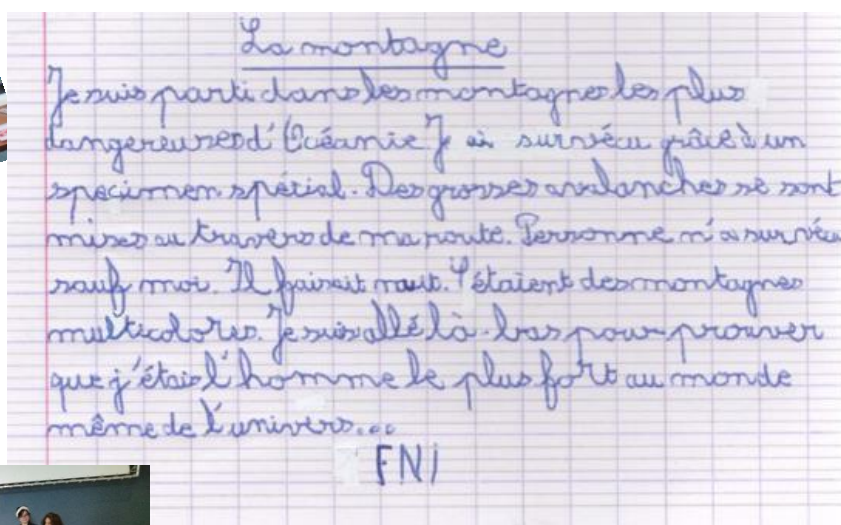 La montagne
Je suis parti dans les montagnes les plus
dangereuses d'Océanie J'ai survécu grâce à un
specimen spétial. Des grosses avalanches se sont
mises au travers de ma route. Personne n'a survécu
sauf moi. Il faisait nuit. C'étaient des montagnes
multicolores. Je suis allé là-bas pour prouver
que j'étais l'homme le plus fort au monde
même de l'univers...
FNI